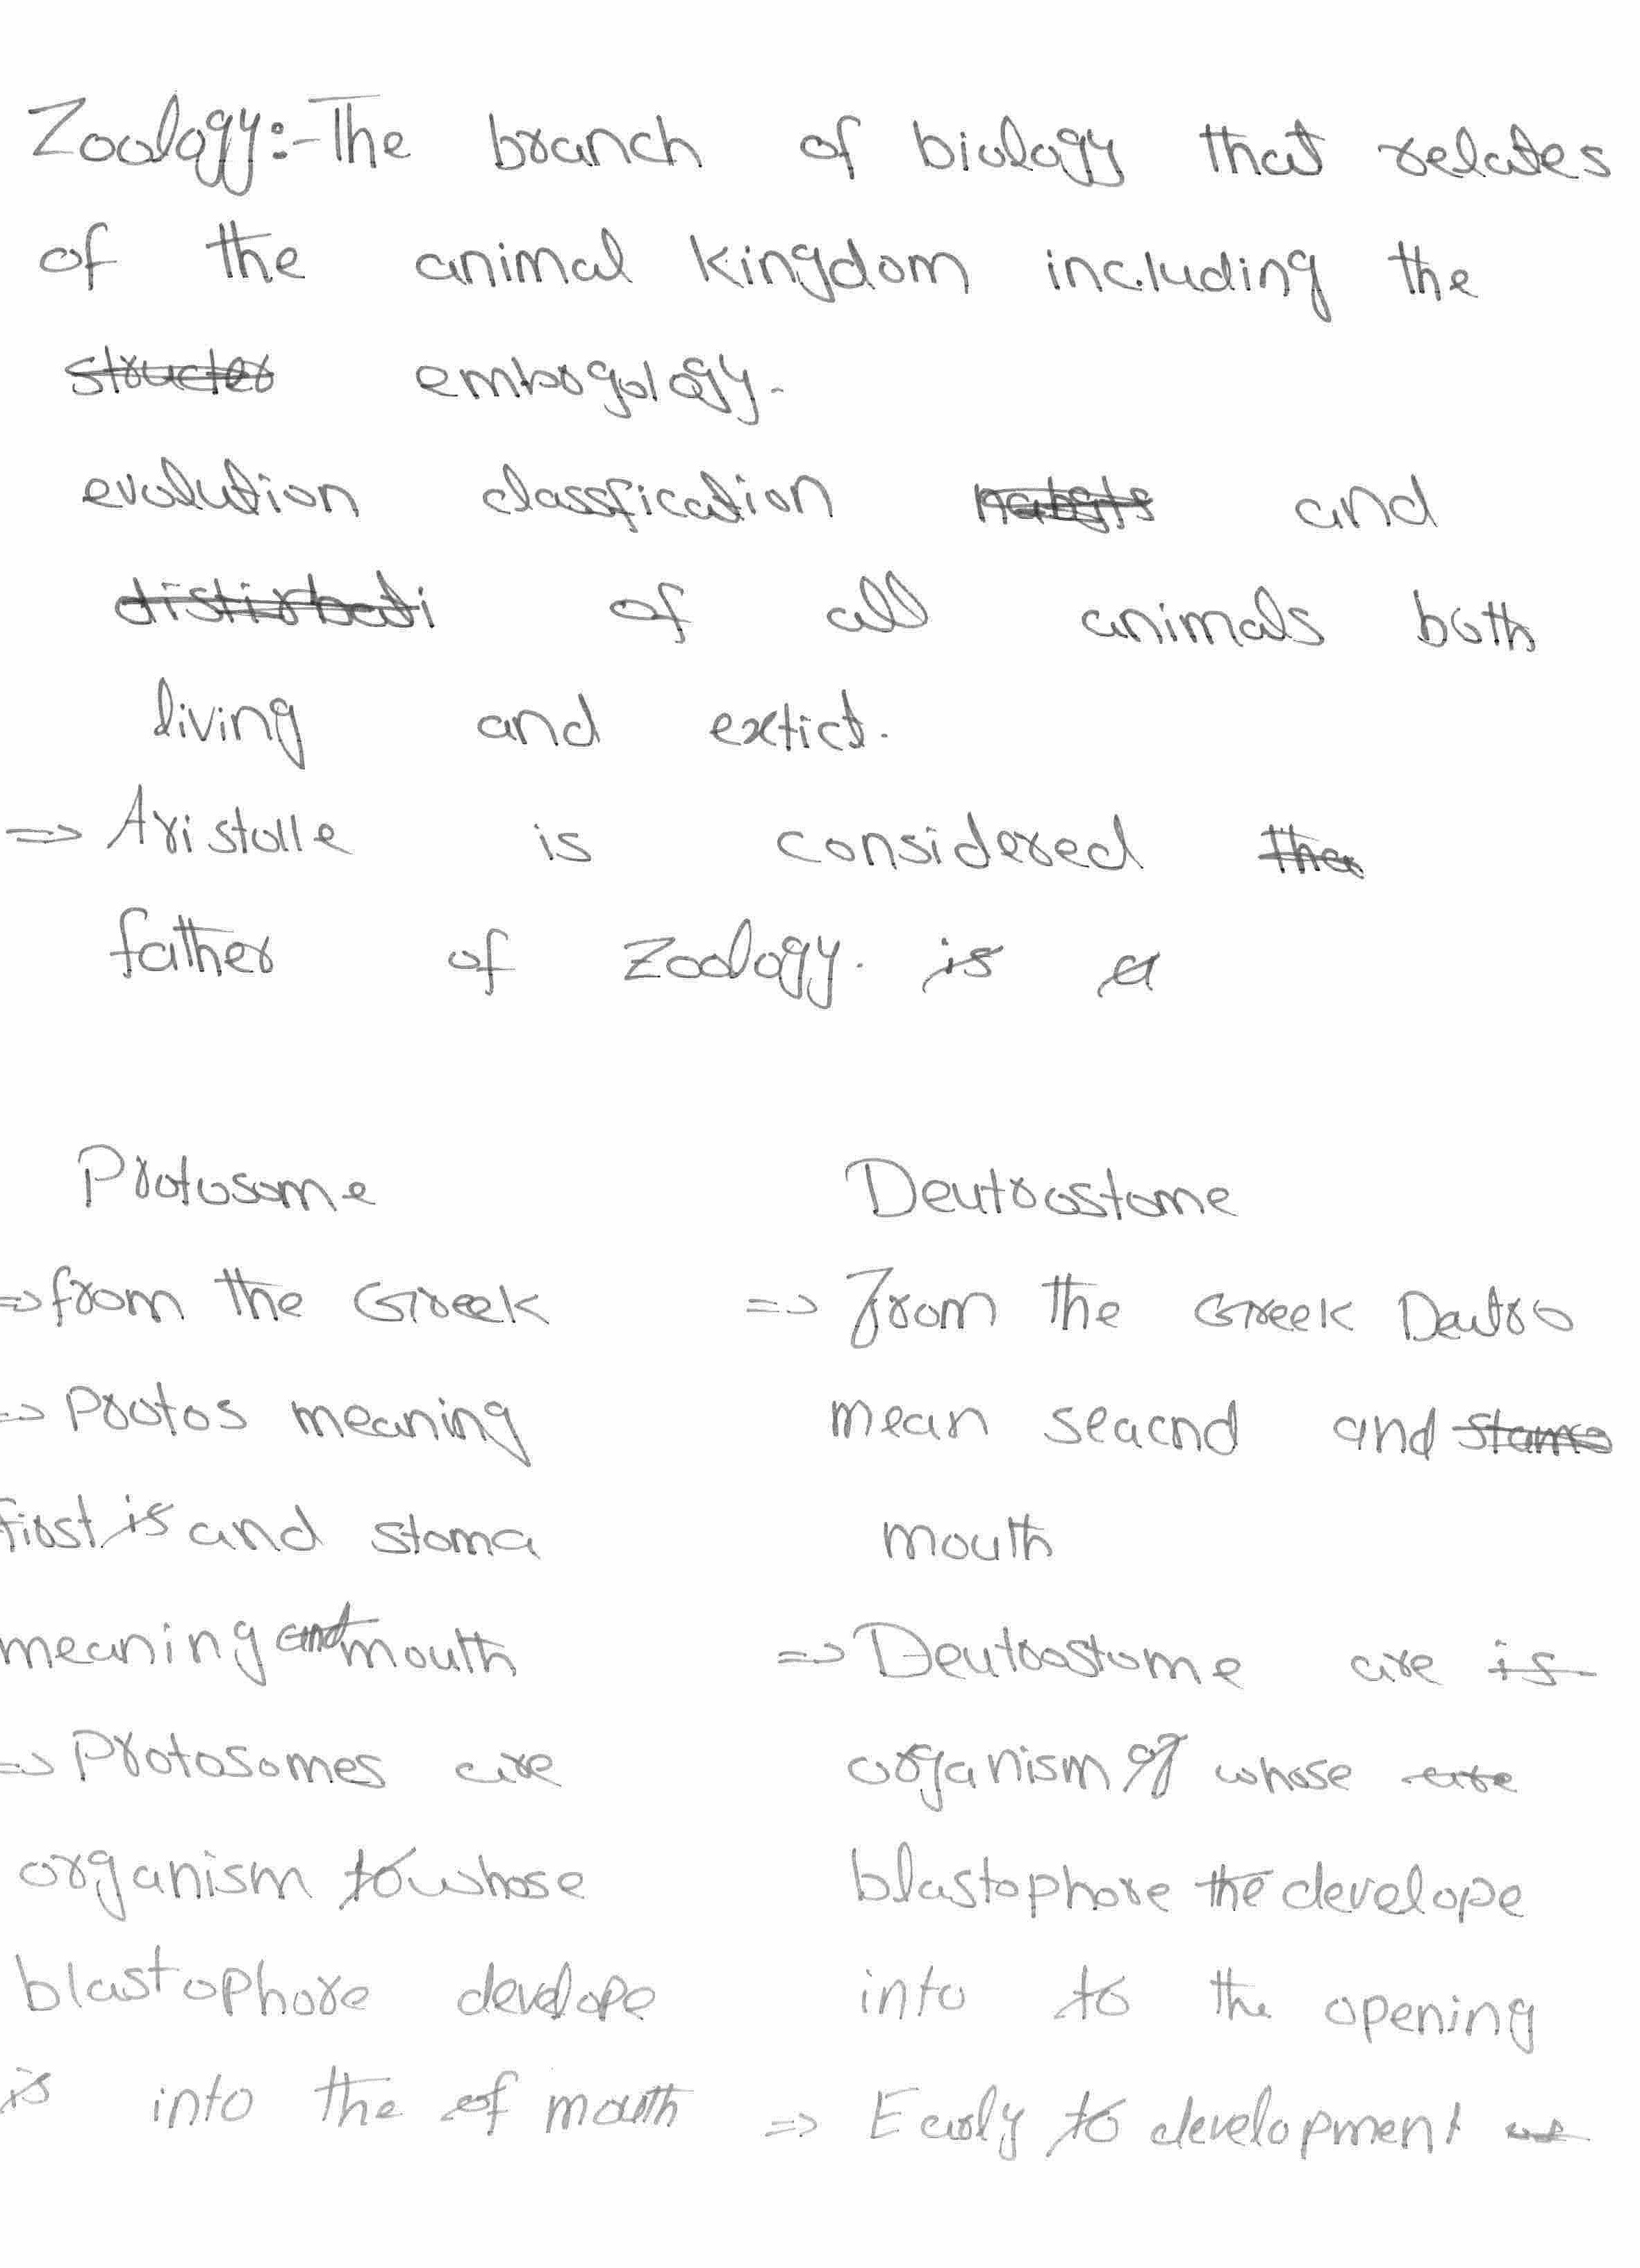 Zoology:-The branch of biology that relates
of the animal kingdom including the
~~structer~~ embrogology.
evolution classfication ~~habsts~~ and
~~distirbuti~~ of all animals both
living and extict.
=> Aristolle is considered ~~the~~
father of Zoology. ~~is~~ ~~a~~
Protosome
=> from the Greek
=> Protos meaning
first ~~is~~ and stoma
meaning ~~and~~ mouth
=> Protosomes are
organism ~~to~~ whose
blastophore develope
~~is~~ into the ~~of~~ mouth
Deutrostome
=> From the Greek Deutro
mean seacnd and ~~stams~~
mouth
=> Deutrostome are ~~is~~
organism ~~of~~ whose ~~are~~
blastophore ~~the~~ develope
into ~~to~~ the opening
=> Early ~~to~~ development